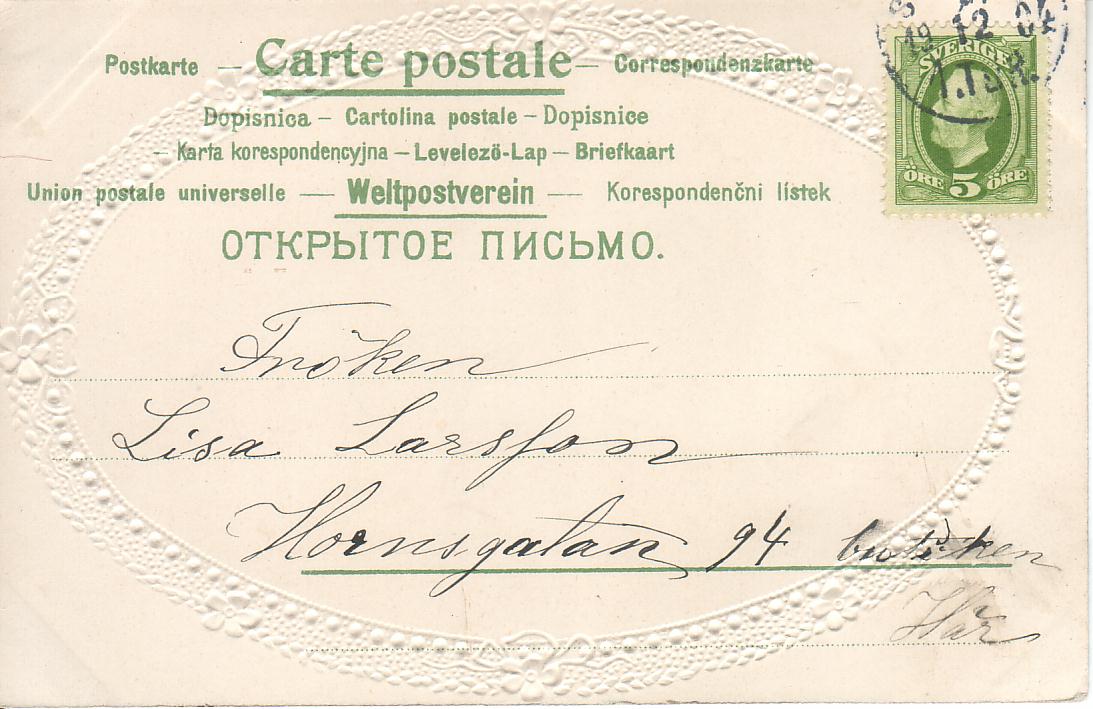 Postkarte — Carte postale — Correspondenzkarte
Dopisnica — Cartolina postale — Dopisnice
— Karta korespondencyjna — Levelező-Lap — Briefkaart
Union postale universelle — Weltpostverein — Korespondenční lístek
ОТКРЫТОЕ ПИСЬМО.
19 12 04
SVERIGE
ÖRE 5 ÖRE
Fröken
Lisa Larsson
Hornsgatan 94 butiken
Här